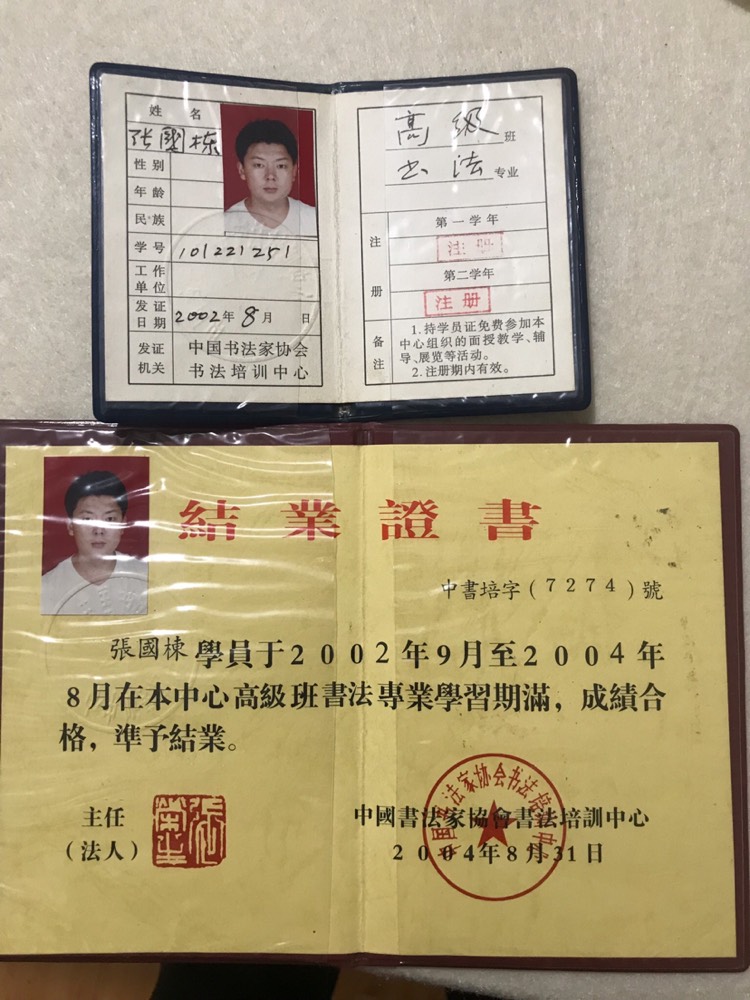 姓 名
张國栋
性别
年龄
民族
学号 101221251
工作
单位
发证
日期 2002年8月 日
发证
机关
中国书法家协会
书法培训中心
高级班
书法专业
注
册
第一学年
注册
第二学年
注册
备
注
1.持学员证免费参加本
中心组织的面授教学、辅
导、展览等活动。
2.注册期内有效。
結業證書
中書培字(7274)號
張國棟學員于2002年9月至2004年
8月在本中心高級班書法專業學習期滿，成績合
格，準予結業。
主任
(法人)
張榮生
中國書法家協會書法培訓中心
2004年8月31日
中国书法家协会书法培训中心